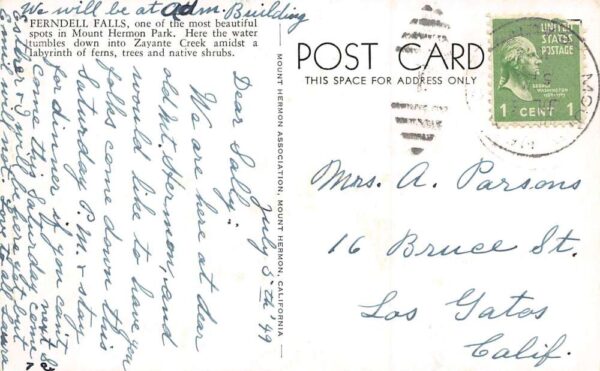 We will be at Adm. Building
FERNDELL FALLS, one of the most beautiful
spots in Mount Hermon Park. Here the water
tumbles down into Zayante Creek amidst a
labyrinth of ferns, trees and native shrubs.
July 5th '49
Dear Sally:
We are here at dear
old Mt. Hermon, and
would like to have you
folks come down this
Saturday P.M. & stay
for dinner if you can't
come this Saturday come
next Sat.
Esther & I will be here yet but
Love to all Laura
MOUNT HERMON ASSOCIATION, MOUNT HERMON, CALIFORNIA
POST CARD
THIS SPACE FOR ADDRESS ONLY
UNITED
STATES
POSTAGE
GEORGE
WASHINGTON
1 CENT 1
Mrs. A. Parsons
16 Bruce St.
Los Gatos
Calif.